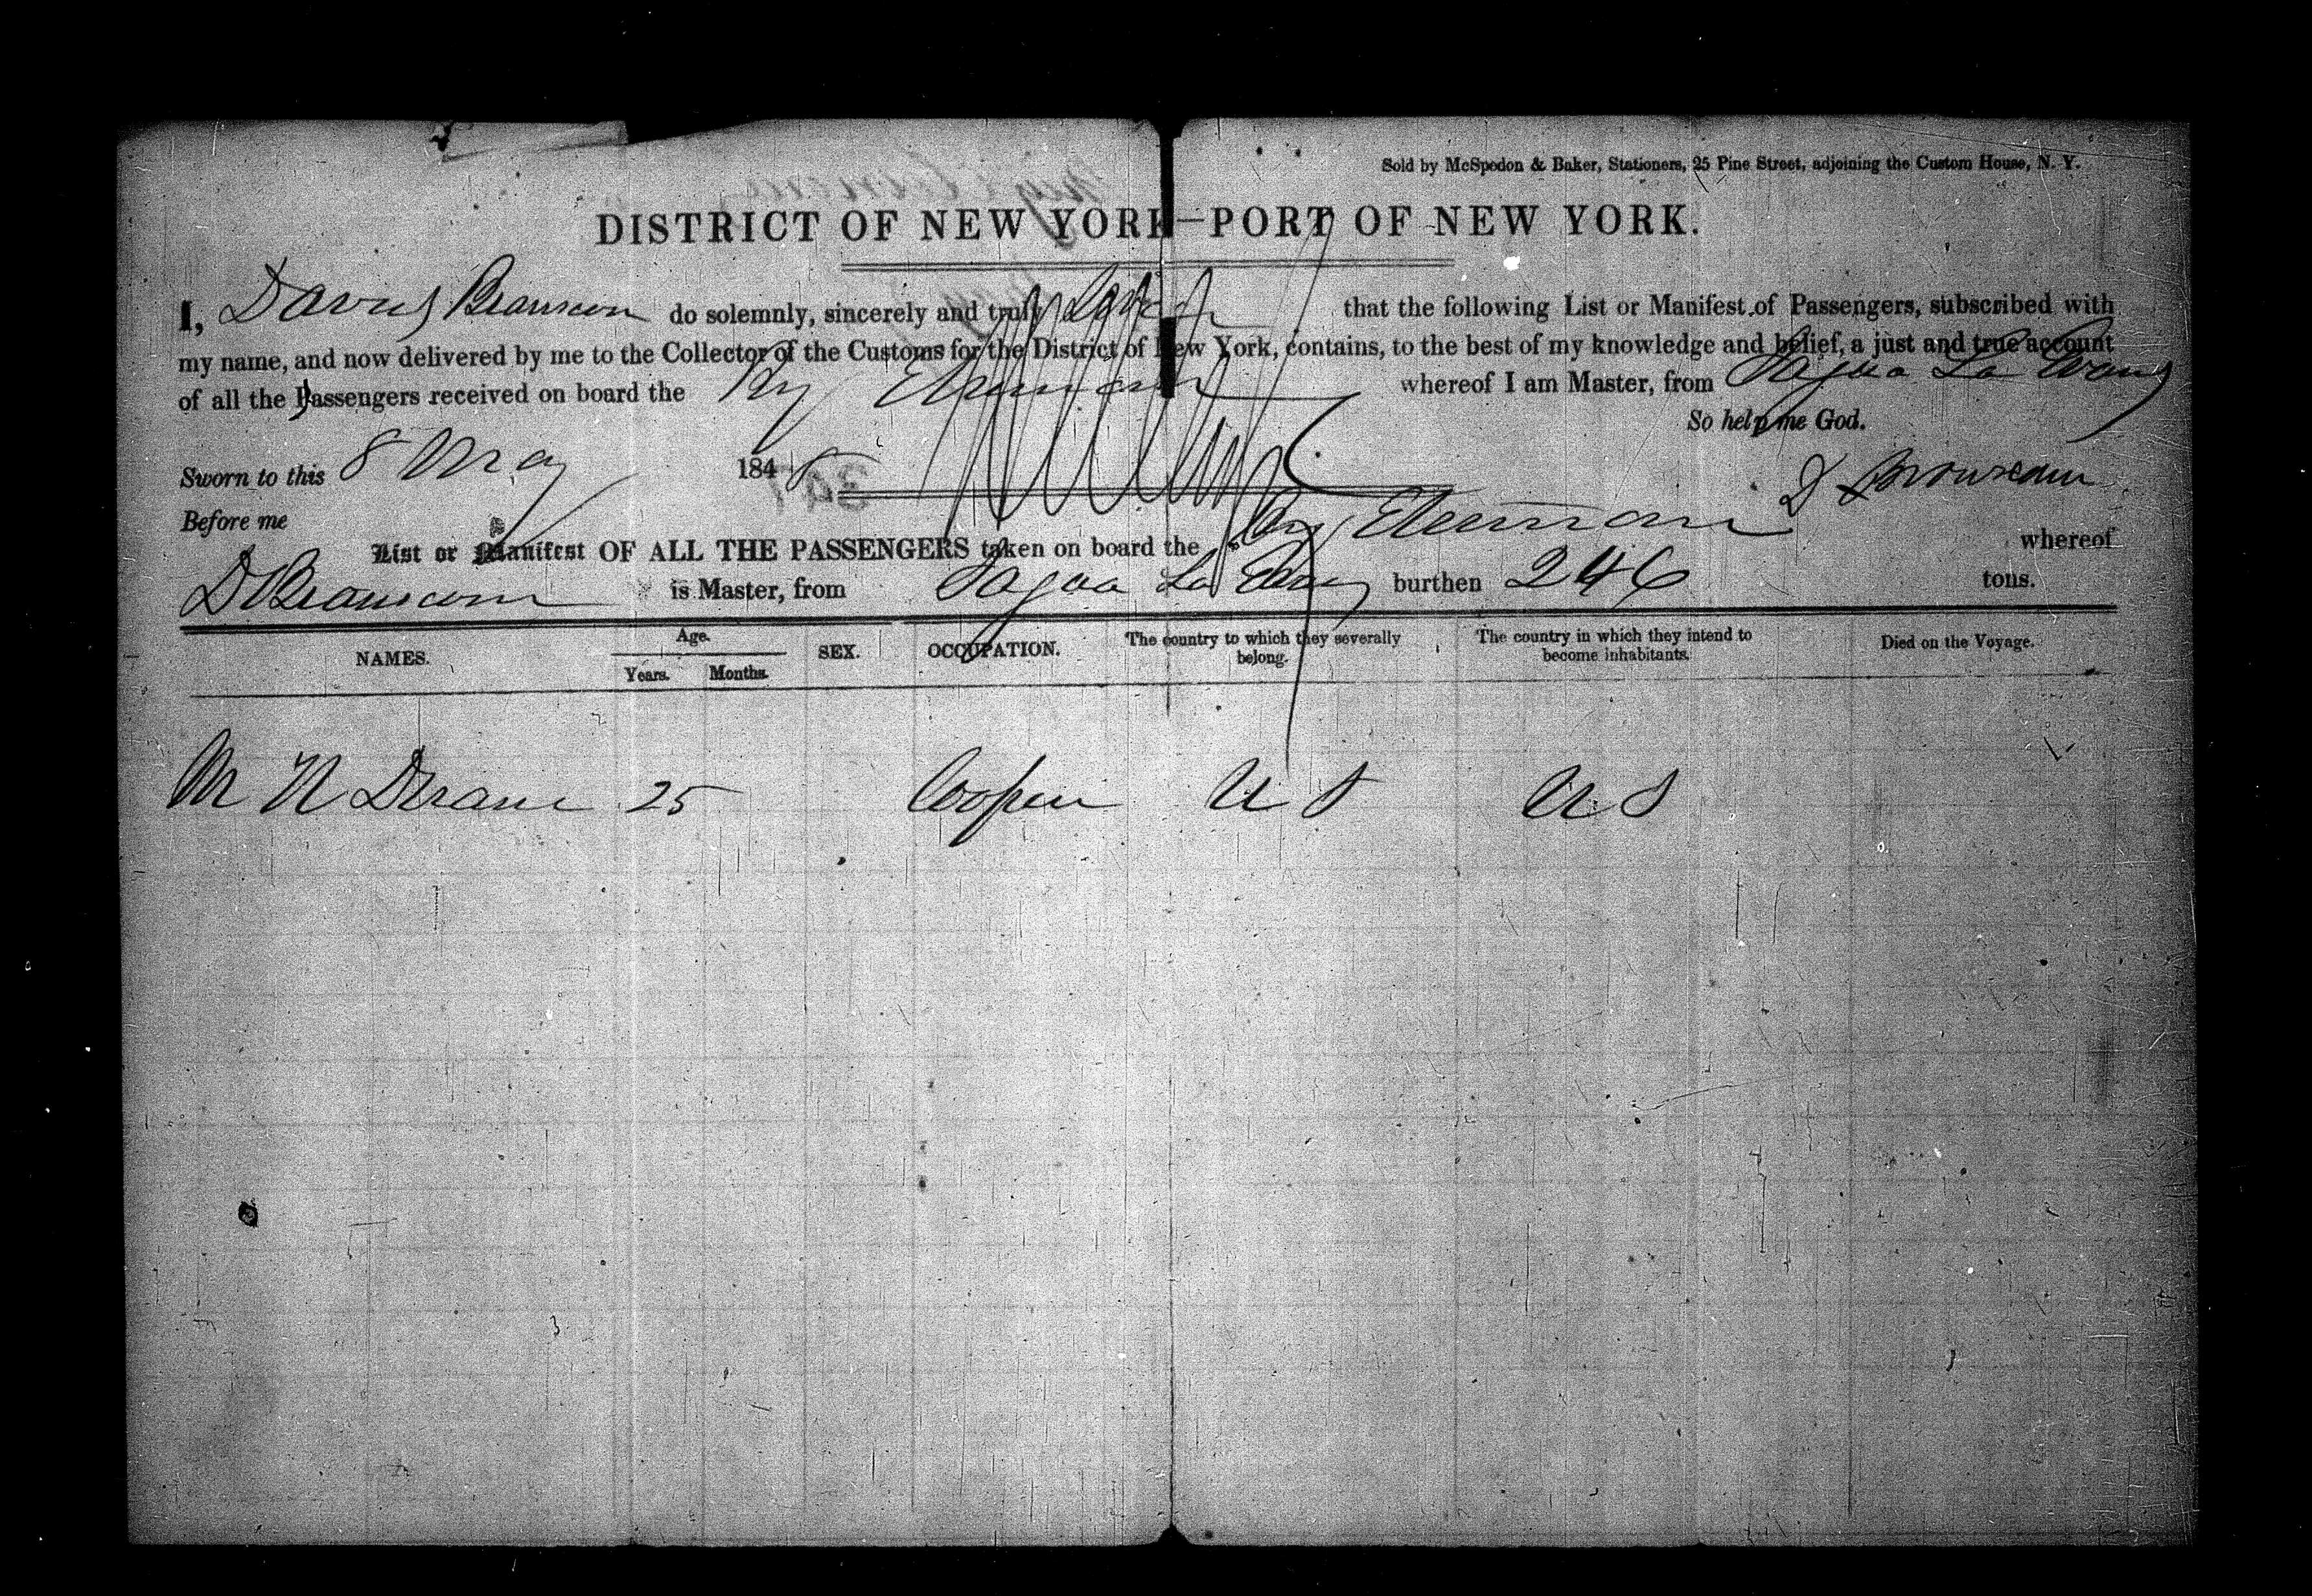 Sold by McSpedon & Baker, Stationers, 25 Pine Street, adjoining the Custom House, N. Y.
DISTRICT OF NEW YORK—PORT OF NEW YORK.
I, do solemnly, sincerely and truly that the following List or Manifest of Passengers, subscribed with
my name, and now delivered by me to the Collector of the Customs for the District of New York, contains, to the best of my knowledge and belief, a just and true account
of all the Passengers received on board the whereof I am Master, from Sagua La
So help me God.
Sworn to this 8 May 184
Before me
List or Manifest OF ALL THE PASSENGERS taken on board the whereof
is Master, from Sagua La burthen 246 tons.
NAMES. Age. SEX. OCCUPATION. The country to which they severally belong. The country in which they intend to become inhabitants. Died on the Voyage.
Years. Months.
M N 25 Cooper U S U S